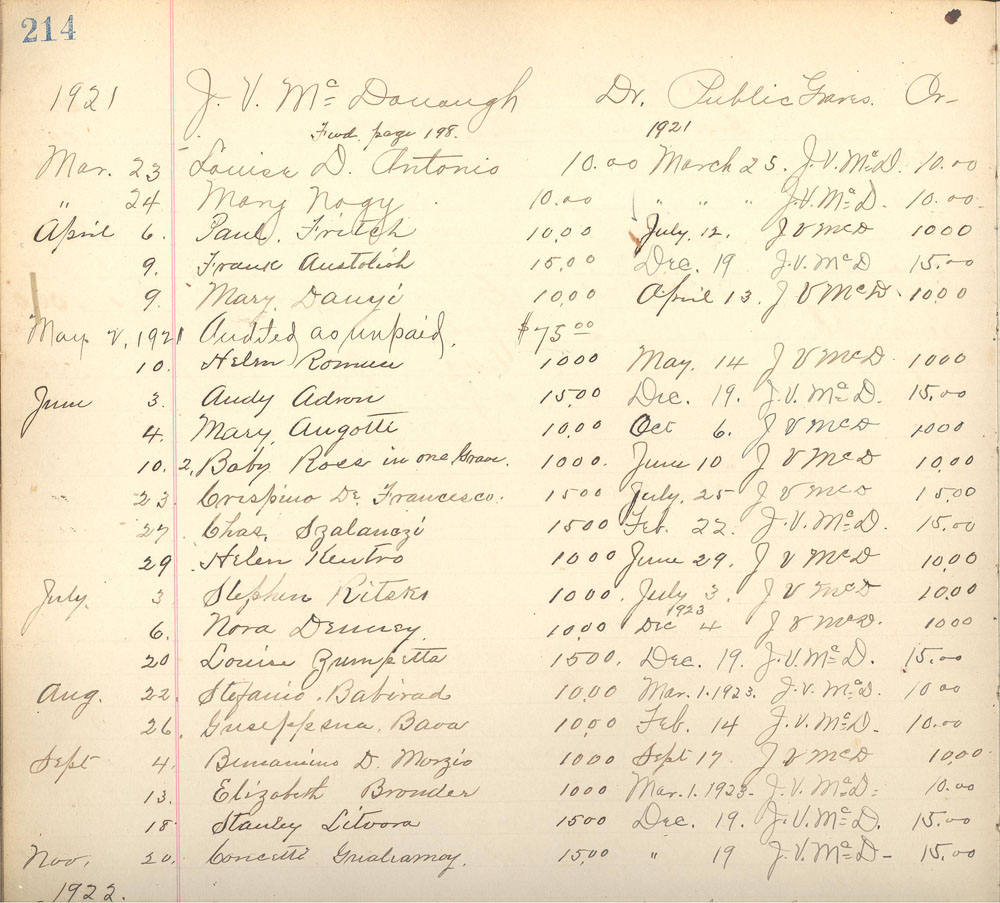 214
1921 J. V. Mc Donough Dr. Public Graves. Cr-
Fwd. page 198. 1921
Mar. 23 Louise D. Antonio 10.00 March 25. J.V.McD. 10.00
" 24 Mary Nagy. 10.00 " " " J.V.McD. 10.00
April 6. Paul Fritch 10.00 July. 12. J V McD 1000
9. Frank 15.00 Dec. 19 J.V.McD 15.00
9. Mary Danyi 10.00 April 13. J V McD. 10.00
May 2, 1921 Audited as unpaid. $75.00
10. Helen 1000 May. 14 J V McD 1000
June 3. Andy Adron 15.00 Dec. 19. J.V.McD. 15.00
4. Mary Angotti 10.00 Oct 6. J V McD 1000
10. 2, Baby Roes in one Grave. 1000. June 10 J V McD 10.00
23. Crispino De Francesco. 1500 July. 25 J V McD 15.00
27. Chas. Szalanczi 1500 Feb. 22. J.V.McD. 15.00
29 Helen 1000 June 29. J V McD 10.00
July. 3 Stephen Ritski 1000. July 3. J V McD 10.00
1923
6. Nora 10.00 Dec 4 J V McD. 1000
20 Louise Zumpetta 1500. Dec. 19. J.V.McD. 15.00
Aug. 22. Stefanio. Babirad 10.00 Mar. 1. 1923. J.V.McD. 10.00
26. Bava 10.00 Feb. 14 J.V.McD. 10.00
Sept 4. D. Morzio 1000 Sept 17 J V McD 10.00
13. Elizabeth Bronder 1000 Mar. 1. 1923- J.V.McD. 10.00
18 Stanley Litvora 1500 Dec. 19. J.V.McD. 15.00
Nov. 20. 15.00 " 19 J.V.McD- 15.00
1922.